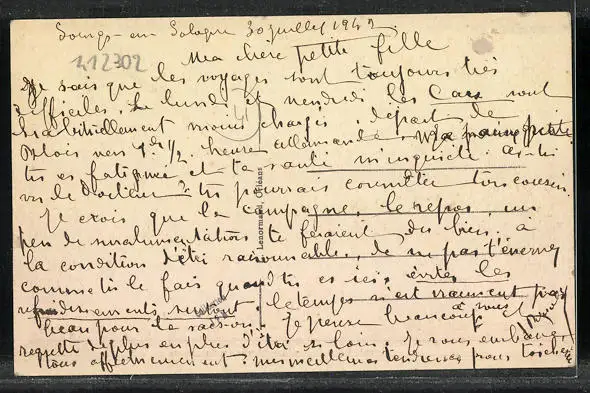 en Sologne 30 juillet 194
412302
Ma chère petite fille
Je sais que les voyages sont toujours très
difficiles Le lundi et vendredi les Cars sont
habituellement moins chargés, départ de
Blois vers 4h 1/2. heure allemande. Ma pauvre petite
tu es fatiguée et ta santé m'inquiète as-tu
vu le Docteur? tu pourrais consulter ton cousin.
Je crois que la campagne, le repos, un
peu de suralimentation te feraient du bien, à
la condition d'être raisonnable, de ne pas t'énerver
comme tu le fais quand tu es ici, évites les
refroidissements surtout, le temps n'est vraiment pas
beau pour la saison. Je pense beaucoup à vous
regrette de plus en plus d'être si loin. Je vous embrasse
tous affectueusement. meilleures tendresses pour
Lenormand, Orléans